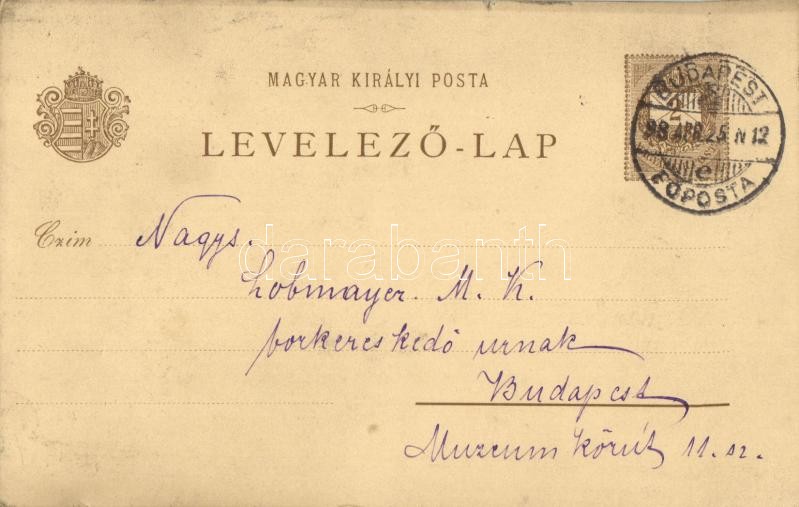 MAGYAR KIRÁLYI POSTA
LEVELEZŐ-LAP
BUDAPEST
98 APR. 25 N 12
FŐPOSTA
2
Czim
Nagys.
Lobmayer. M. K.
borkereskedő urnak
Budapest
Muzeum körút 11. sz.
darabanth